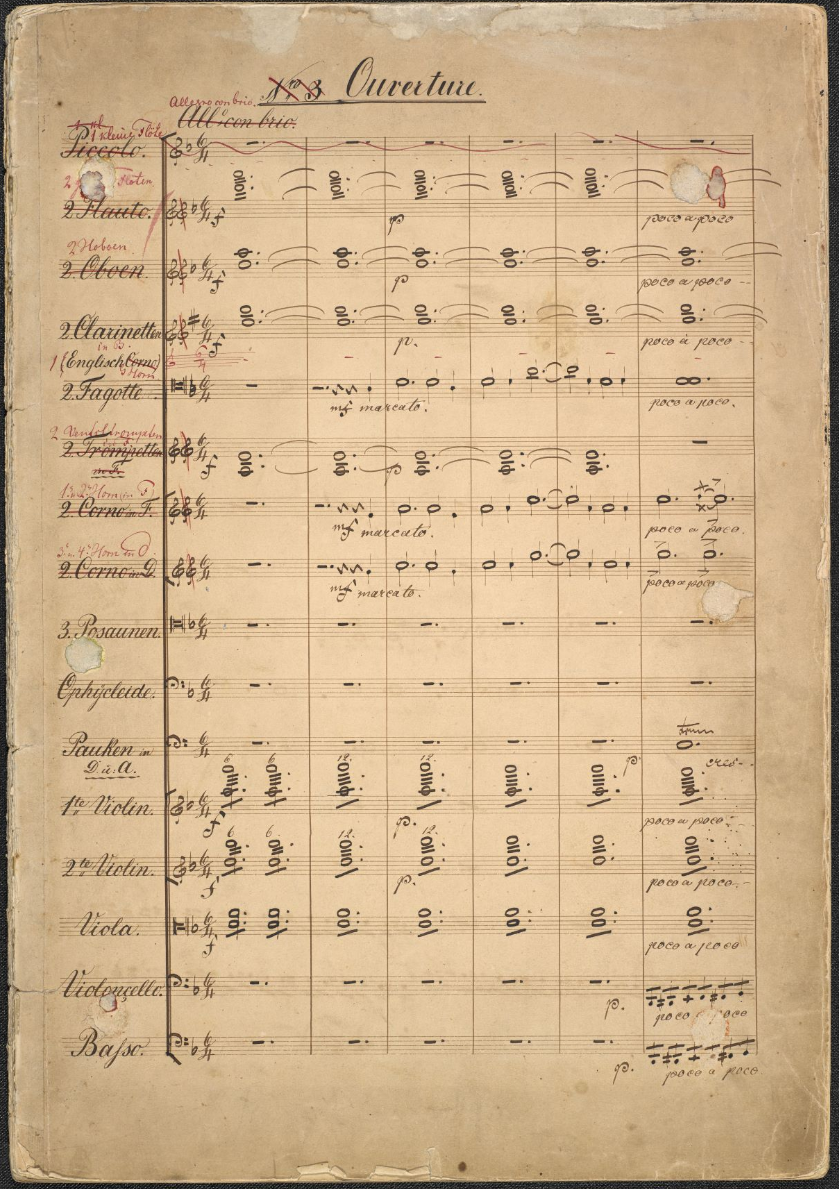 Nro 3 Ouverture.
Allegro con brio.
Allo con brio.
1 kleine Flöte
Piccolo.
2 Flöten
2 Flauto.
f p poco a poco
2 Hoboen
2. Oboen.
f p poco a poco --
2. Clarinetten
in B.
f p. poco à poco --
1 (Englisch Corno)
Horn
2. Fagotte.
mf marcato. poco a poco.
2 Ventiltrompeten
2. Trompetten
in F.
f p
1. u. 2. Horn in F.
2. Corno in F.
mf marcato. poco a poco.
3. u. 4. Horn in D.
2. Corno in D.
mf marcato. poco a poco
3. Posaunen.
Ophÿcleide.
Pauken in
D. u. A.
p cres -
6 6 12. 12.
1te Violin.
f p. poco a poco -
6. 6. 12. 12.
2te Violin.
f p. poco a poco. -
Viola.
f poco a poco
Violonçello.
p. poco a poco
Basso.
p. poco a poco